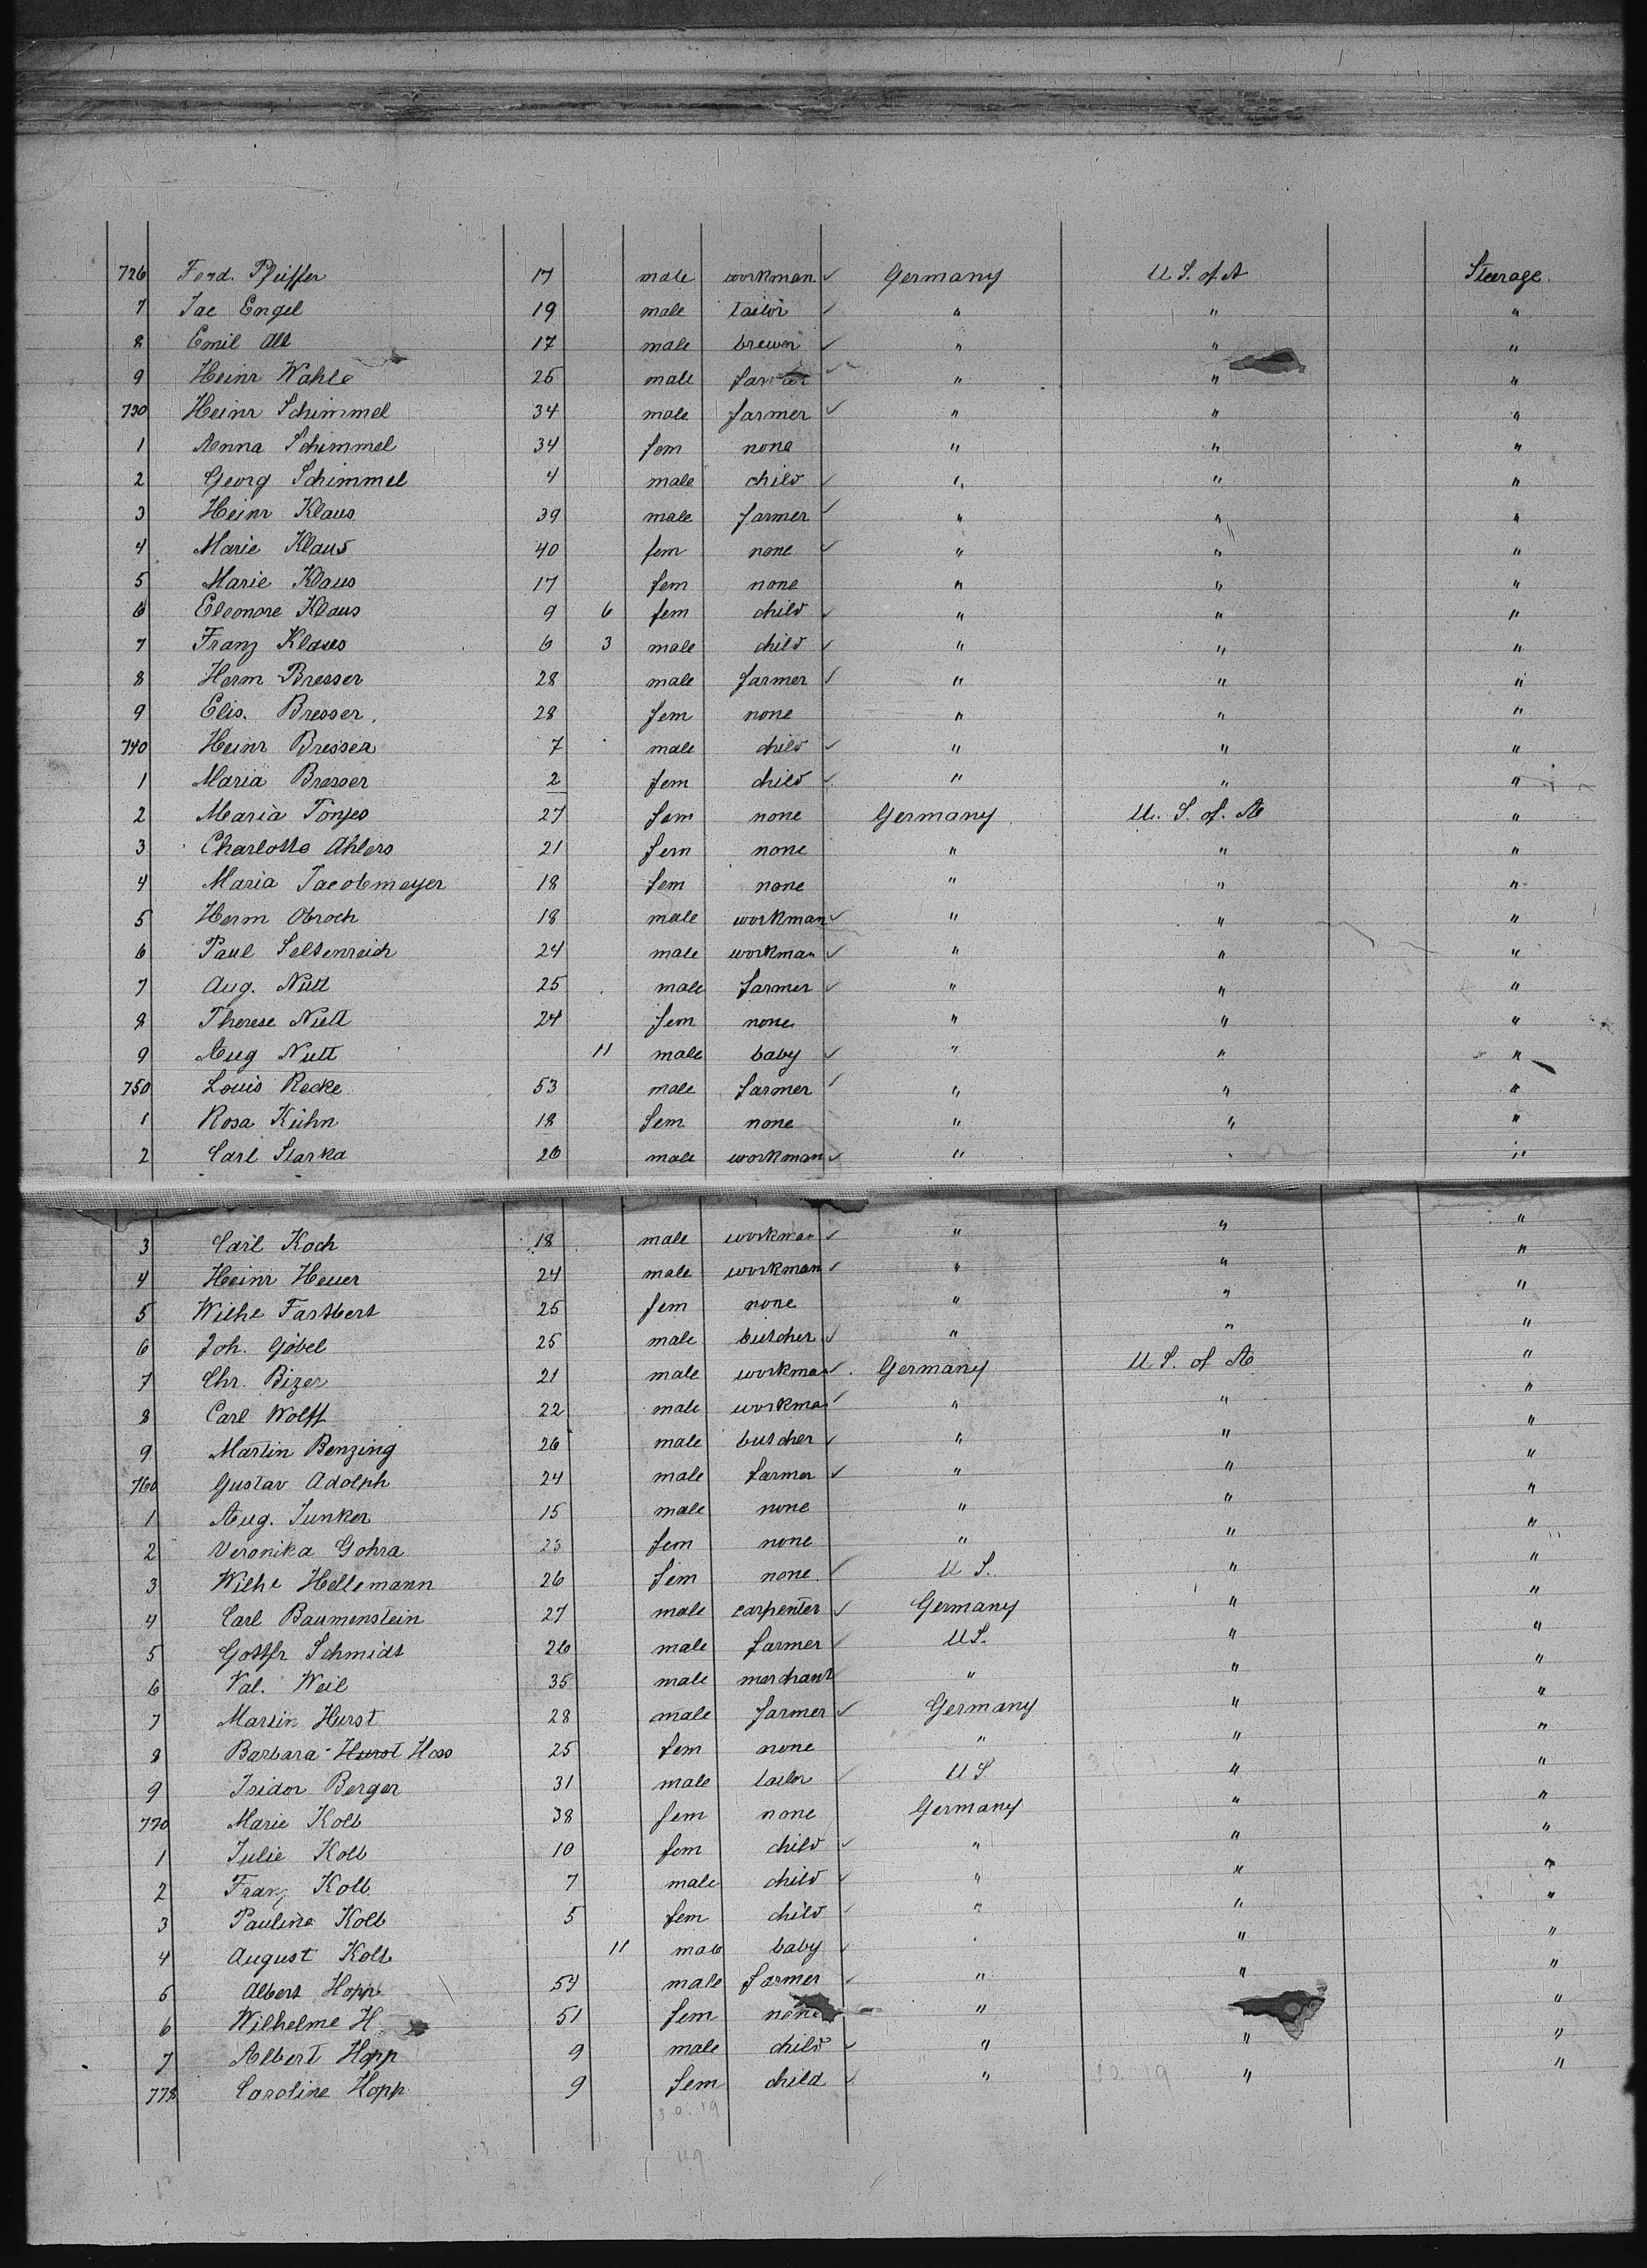 726 Ferd. Pfeiffer 17 male workman ✓ Germany U S. of A Steerage.
7 Jac Engel 19 male tailor ✓ " " "
8 Emil Alt 17 male brewer ✓ " " "
9 Heinr Wahle 25 male farmer ✓ " " "
730 Heinr Schimmel 34 male farmer ✓ " " "
1 Anna Schimmel 34 fem none " " "
2 Georg Schimmel 4 male child ✓ " " "
3 Heinr Klaus 39 male farmer ✓ " " "
4 Marie Klaus 40 fem none ✓ " " "
5 Marie Klaus 17 fem none " " "
6 Eleonore Klaus 9 6 fem child ✓ " " "
7 Franz Klaus 6 3 male child ✓ " " "
8 Herm Bresser 28 male farmer ✓ " " "
9 Elis. Bresser. 28 fem none " " "
740 Heinr Bresser 7 male child ✓ " " "
1 Maria Bresser 2 fem child ✓ " " "
2 Maria Tönjes 27 fem none Germany U. S. of. A "
3 Charlotte Ahlers 21 fem none " " "
4 Maria Jacobmeyer 18 fem none " " "
5 Herm Obroch 18 male workman ✓ " " "
6 Paul Seltenreich 24 male workman ✓ " " "
7 Aug. Nutt 25 male farmer ✓ " " "
8 Therese Nutt 24 fem none " " "
9 Aug Nutt 11 male baby ✓ " " "
750 Louis Recke 53 male farmer ✓ " " "
1 Rosa Kühn 18 fem none " " "
2 Carl Starka 26 male workman ✓ " " "
3 Carl Koch 18 male workman ✓ " " "
4 Heinr Heuer 24 male workman ✓ " " "
5 Wilhe 25 fem none " " "
6 Joh. Göbel 25 male butcher ✓ " " "
7 Chr. Bizer 21 male workman ✓ Germany U S. of A "
8 Carl Wolff 22 male workman ✓ " " "
9 Martin Benzing 26 male butcher ✓ " " "
760 Gustav Adolph 24 male farmer ✓ " " "
1 Aug. Junker 15 male none " " "
2 Veronika Gohra 23 fem none " " "
3 Wilhe Hellemann 26 fem none ✓ U S. " "
4 Carl Baumenstein 27 male carpenter ✓ Germany " "
5 Gottfr Schmidt 26 male farmer ✓ U S. " "
6 Val. Weil 35 male merchant " " "
7 Martin Hurst 28 male farmer ✓ Germany " "
8 Barbara Hurst Hoss 25 fem none " " "
9 Isidor Berger 31 male tailor ✓ U S " "
770 Marie Kolb 38 fem none Germany " "
1 Julie Kolb 10 fem child ✓ " " "
2 Franz Kolb 7 male child ✓ " " "
3 Pauline Kolb 5 fem child ✓ " " "
4 August Kolb 11 male baby ✓ " " "
5 Albert Hopp 54 male farmer ✓ " " "
6 Wilhelme H 51 fem none " "
7 Albert Hopp 9 male child ✓ " " "
778 Caroline Hopp 9 fem child ✓ " " "